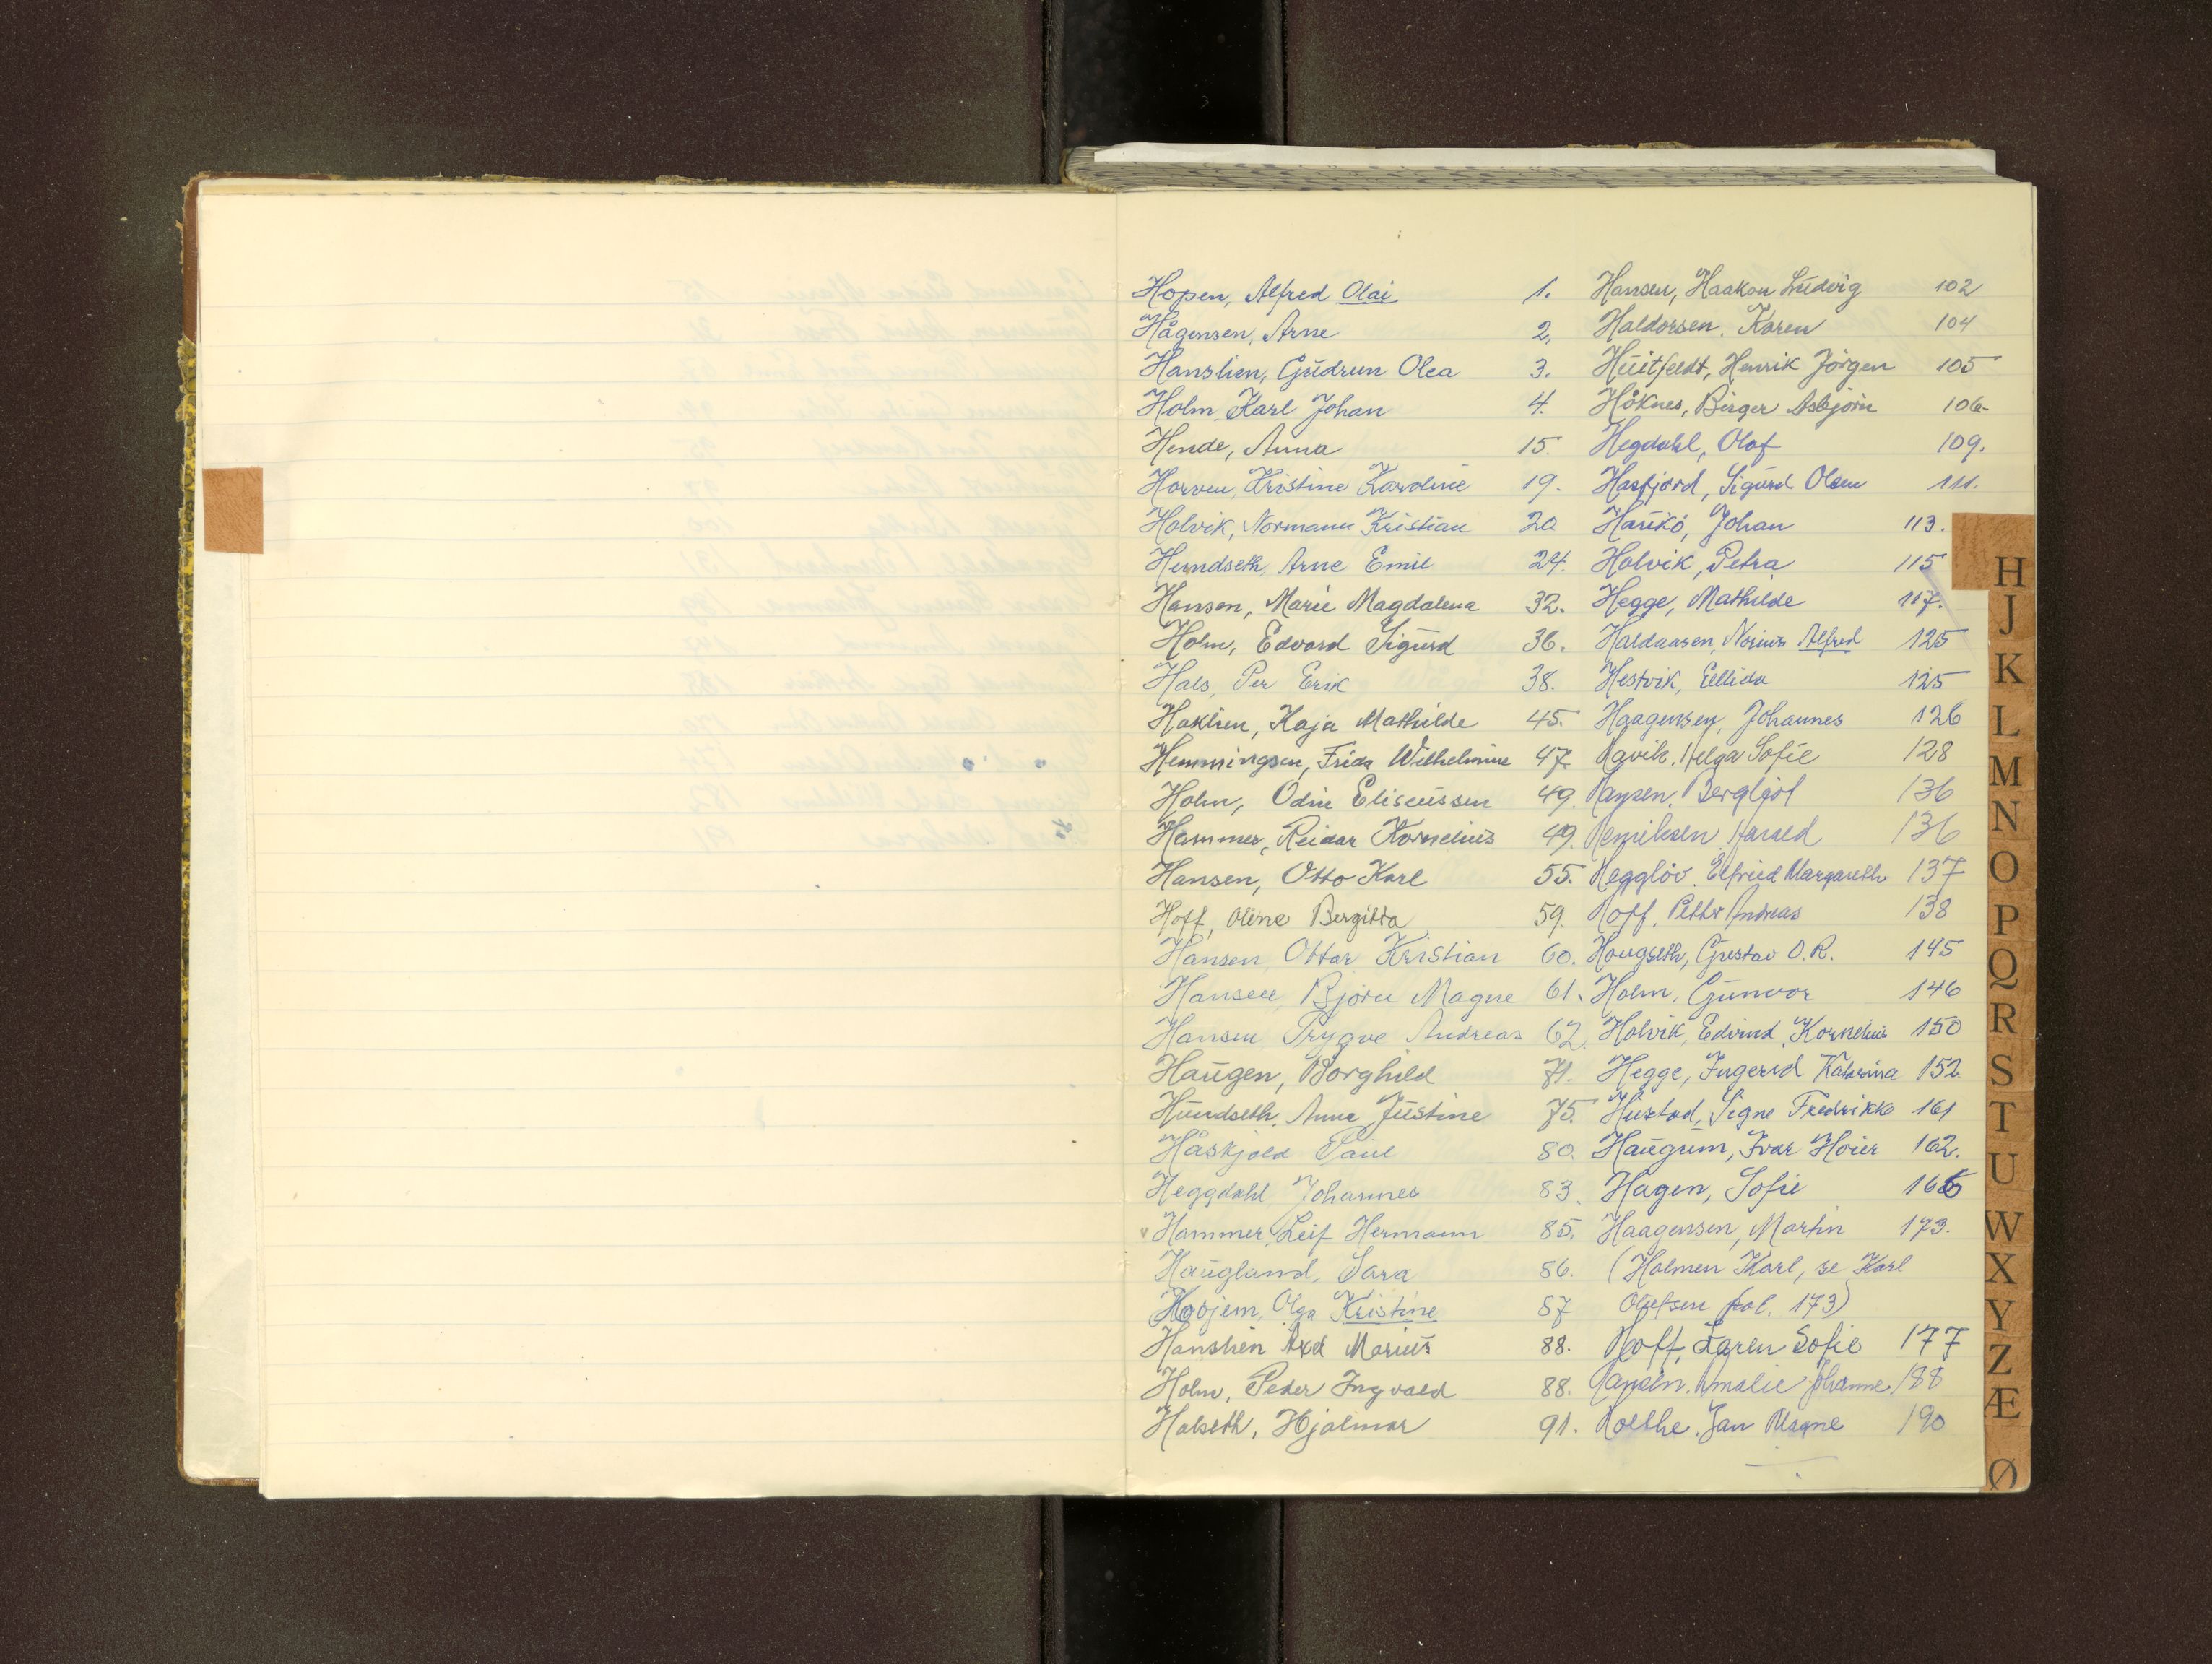 Hopen, Alfred Olai 1.
Hågensen, Arne 2.
Hanslien, Gudrun Olea 3.
Holm Karl Johan 4.
Hende, Anna 15.
Horven, Kristine Karoline 19.
Holvik, Normann Kristian 20
Hundseth, Arne Emil 24.
Hansen, Marie Magdalena 32.
Holm, Edvard Sigurd 36.
Hals, Per Erik 38.
Haklien, Kaja Mathilde 45.
Hemmingsen, Frida Wilhelmine 47.
Holm, Odin Eliseussen 49.
Hammer, Reidar Kornelius 49.
Hansen, Otto Karl 55.
Hoff, Oline Bergitta 59.
Hansen, Ottar Kristian 60.
Hansen, Bjørn Magne 61.
Hansen Trygve Andreas 62.
Haugen, Borghild 71.
Hundseth, Anna Justine 75.
Håskjold Paul 80.
Heggdahl Johannes 83.
Hammer, Leif Hermann 85.
Haugland, Sara 86.
Hoojem, Olga Kristine 87
Hanslien Axel Marius 88.
Holm, Peder Ingvald 88.
Halseth, Hjalmar 91.
Hansen, Haakon Ludvig 102
Haldorsen, Karen 104
Huitfeldt, Henrik Jörgen 105
Høknes, Birger Asbjørn 106.
Hegdahl, Olaf 109.
Hasfjord, Sigurd Olsen 111.
Haukö, Johan 113.
Holvik, Petra 115
Hegge, Mathilde 117.
Haldaasen, Norius Alfred 125
Hestvik, Ellida 125
Haagensen, Johannes 126
Havik, Helga Sofie 128
Hansen, Bergljot 136
Henriksen, Harald 136
Hegglöv, Elfried Margareth 137
Hoff, Petter Andreas 138
Hougseth, Gustav O.R. 145
Holm, Gunvor 146
Holvik, Edvind Kornelius 150
Hegge, Ingerid Katarina 152
Hustad, Signe Fredrikke 161
Haugum, Ivar Hoier 162.
Hagen, Sofie 166
Haagensen, Martin 173.
(Holmen Karl, se Karl
Olufsen fol. 173)
Hoff, Karen Sofie 177
Hansen, Amalie Johanne 188
Holthe, Jan Magne 190
H
J
K
L
M
N
O
P
Q
R
S
T
U
W
X
Y
Z
Æ
Ø